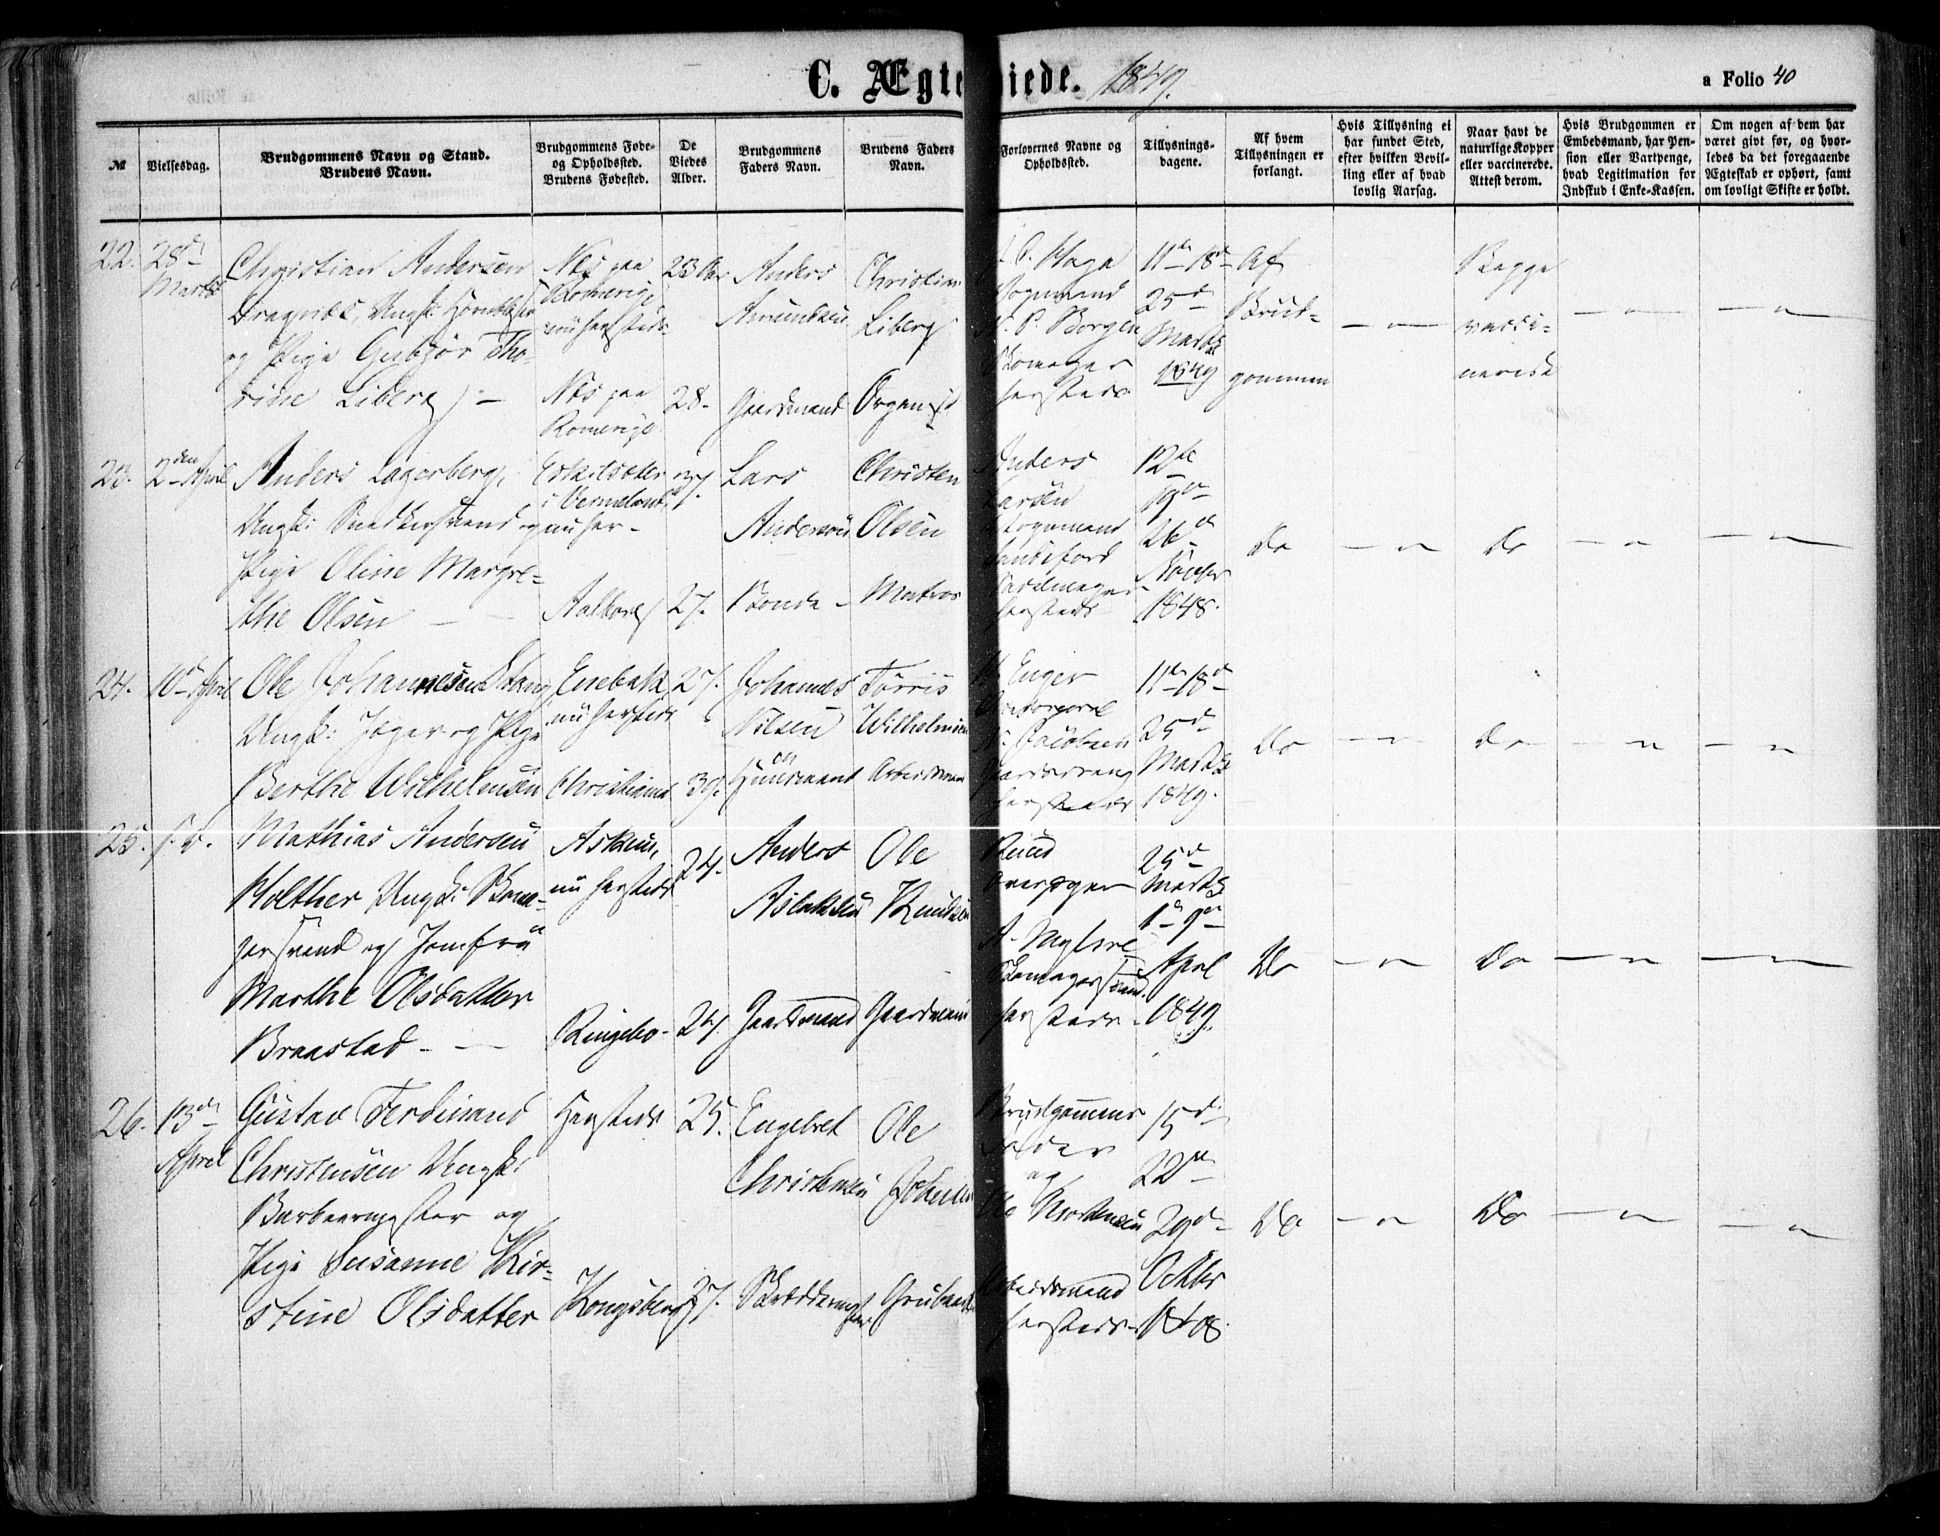 C. Ægte iede. 1849.
a Folio 40
№
Vielsesdag.
Brudgommens Navn og Stand.
Brudens Navn.
Brudgommens Føde-
og Opholdssted.
Brudens Fødested.
De
Viedes
Alder.
Brudgommens
Faders Navn.
Brudens Faders
Navn.
Forlovernes Navne og
Opholdssted.
Tillysnings-
dagene.
Af hvem
Tillysningen er
forlangt.
Hvis Tillysning ei
har fundet Sted,
efter hvilken Bevil-
ling eller af hvad
lovlig Aarsag.
Naar havt de
naturlige Kopper
eller vaccinerede.
Attest derom.
Hvis Brudgommen er
Embedsmand, har Pen-
sion eller Vartpenge,
hvad Legitimation for
Indskud i Enke-Kassen.
Om nogen af dem har
været givt før, og hvor-
ledes da det foregaaende
Ægteskab er ophørt, samt
om lovligt Skifte er holdt.
22.
28d
Marts
Christian Andersen
Dragvik, Ungk:
og Pige Gubjør Tho-
rine Liberg
Næs paa
Romerige
nu hersteds
Næs paa
Romerige
23 Aar
28.
Anders
Amundsen
Gaardmand
Christian
Liberg
Organist
Haga
P. Borgen
Skomager
hersteds
11te 18d
25d
Marts
1849
Af
Brud-
gommen
Begge
vacci-
nerede
23.
2den April
Anders Lagerberg,
Ungk: Snedkersvend og
Pige Oline Margre-
the Olsen
i Vermeland,
nu her-
Aalborg
37.
27.
Lars
Andersen
Bonde
Christen
Olsen
Matros
Anders
Larsen
Sandefjord
Sadelmager
hersteds
12te
19de
26d
Novbr
1848.
Do
Do
24.
10d April
Ole Johannesen Stang
Ungk: Jæger og Pige
Berthe Wilhelmsen
Enebak
nu hersteds
Christiania
27.
39.
Johannes
Nilsen
Huusmand
Tørris
Wilhelmsen
Arbeidsmand
Enger
Jacobsen
hersteds
11te 18d
25d
Marts
1849.
Do
Do
25.
s. D.
Mathias Andersen
Holther Ungk: Skoma-
gersvend og Jomfru
Marthe Olsdatter
Braastad
Askim,
nu hersteds
Ringebo
24.
24.
Anders
Aslaksen
Gaardmand
Ole
Knudsen
Gaardmand
Ruud
Overjæger
A. Myhre
Skomagersvend
hersteds
25d
Marts
1d 9de
April
1849.
Do
Do
26.
13de
April
Gustav Ferdinand
Christensen Ungk:
Barbeermester og
Pige Susanne Kir-
stine Olsdatter
Hersteds
Kongsberg
25.
27.
Engebret
Christensen
Skreddermester
Ole
Johnsen
Grubearb
Brudgommens
Fader
og
Ole Mortensen
Arbeidsmand
hersteds
15d
22de
29d
Octbr
1848.
Do
Do